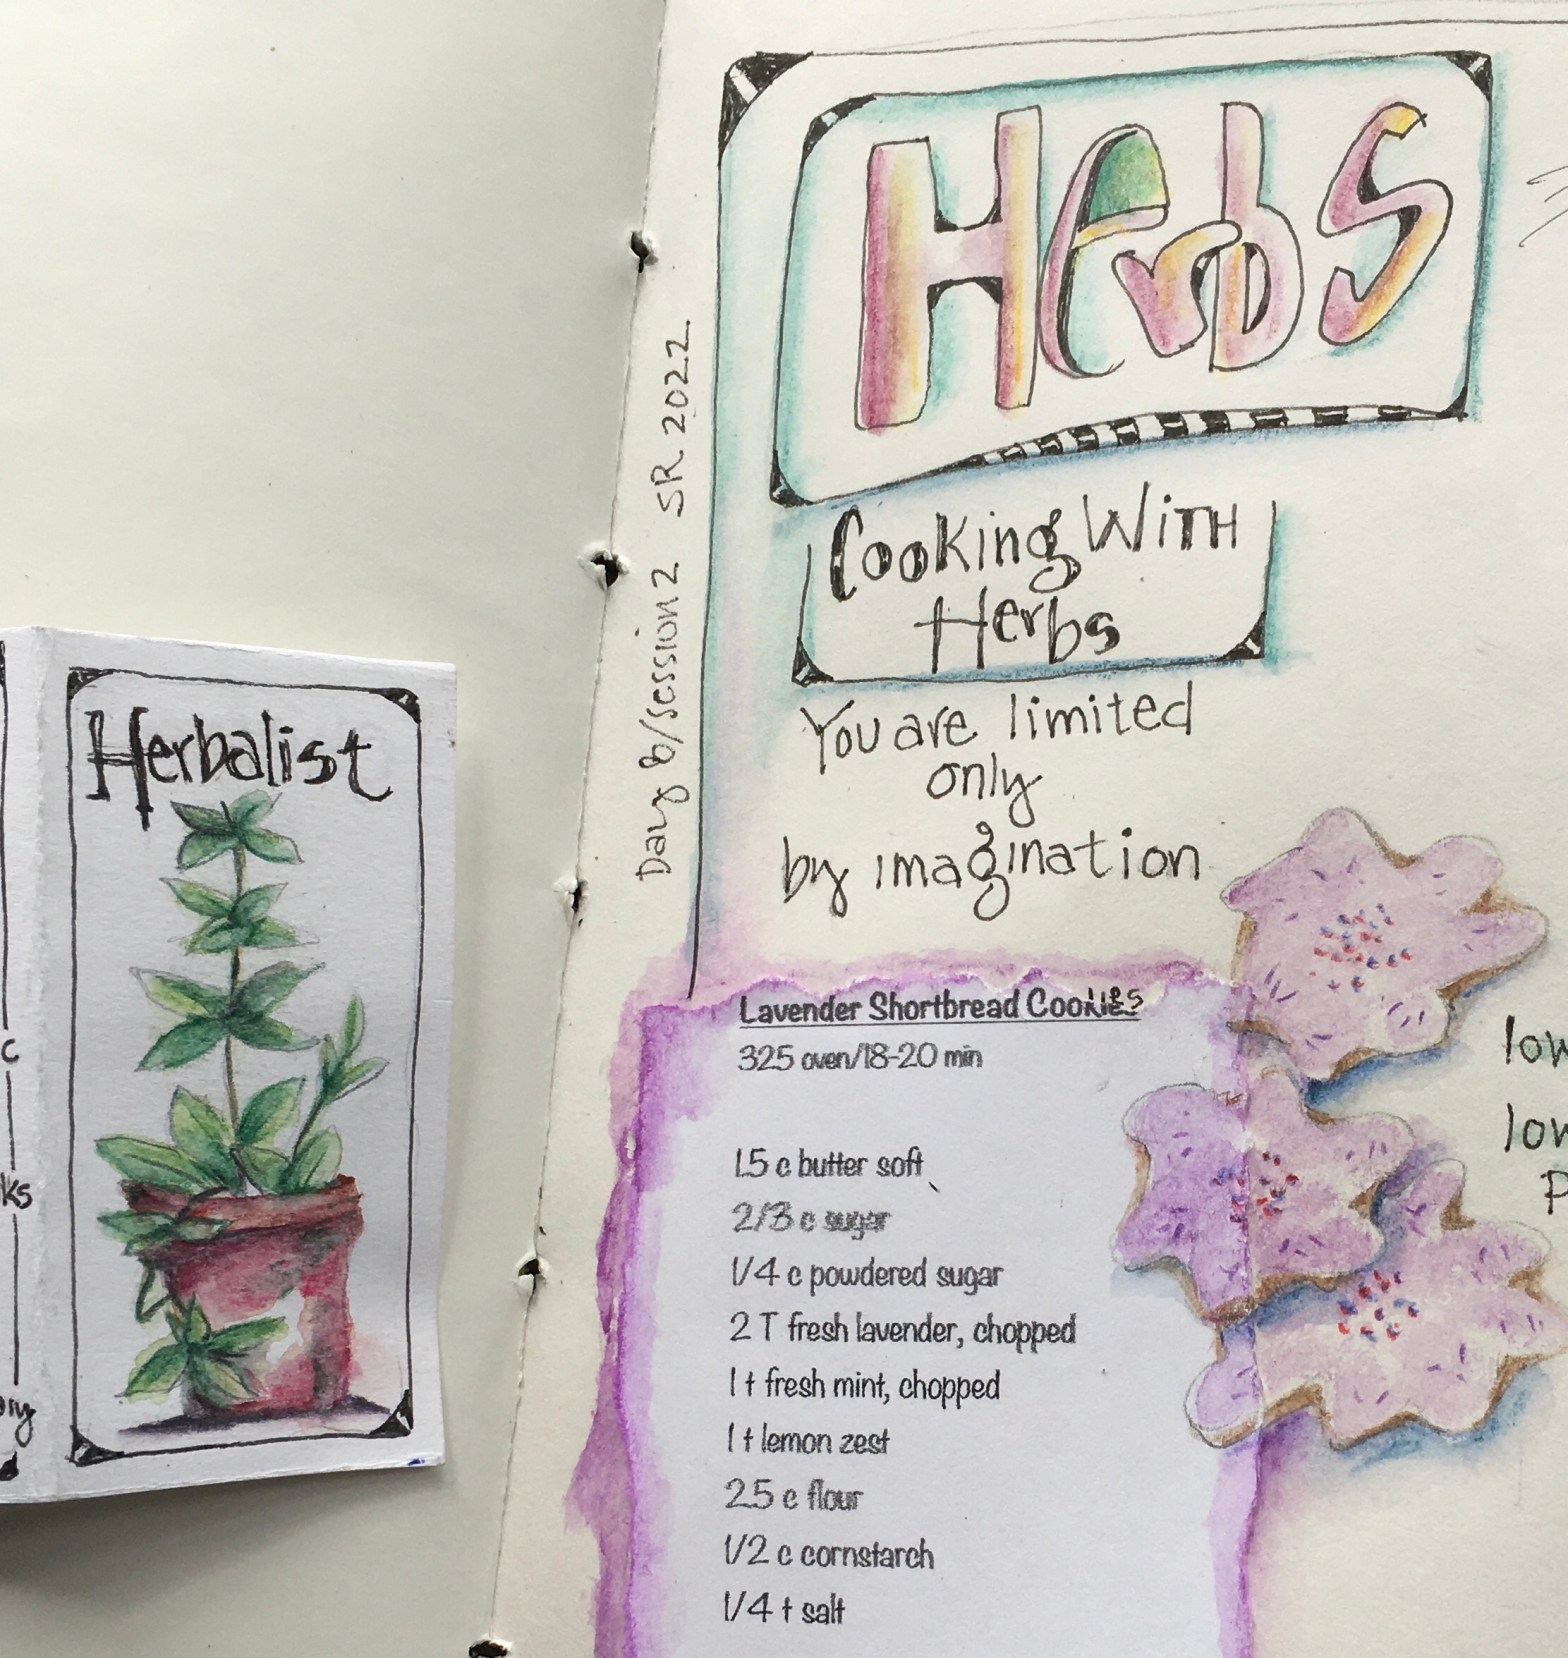 c
ks
Herbalist
Day 8/session 2 SR 2022
Herbs
Cooking WiTH
Herbs
You are limited
only
by imagination
Lavender Shortbread Cookies
325 oven/18-20 min
1.5 c butter soft
2/3 c sugar
1/4 c powdered sugar
2 T fresh lavender, chopped
1 t fresh mint, chopped
1 t lemon zest
2.5 c flour
1/2 c cornstarch
1/4 t salt
low
P